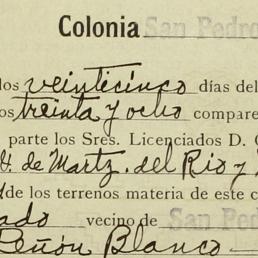 Colonia San Pedro
los veinticinco días del
os treinta y ocho compare
parte los Sres. Licenciados D. C
H. de Martz. del Rio y
de los terrenos materia de este c
ado vecino de San Ped
Peñón Blanco